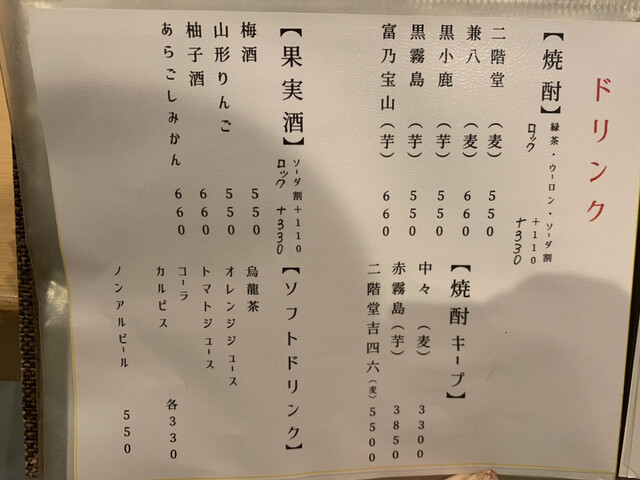 ドリンク
【焼酎】
緑茶・ウーロン・ソーダ割 +110
ロック +330
二階堂（麦） 550
兼八（麦） 660
黒小鹿（芋） 550
黒霧島（芋） 550
富乃宝山（芋） 660
【焼酎キープ】
中々（麦） 3300
赤霧島（芋） 3850
二階堂吉四六（麦） 5500
【果実酒】
ソーダ割+110
ロック +330
梅酒 550
山形りんご 550
柚子酒 660
あらごしみかん 660
【ソフトドリンク】
烏龍茶
オレンジジュース
トマトジュース
コーラ
カルピス 各330
ノンアルビール 550